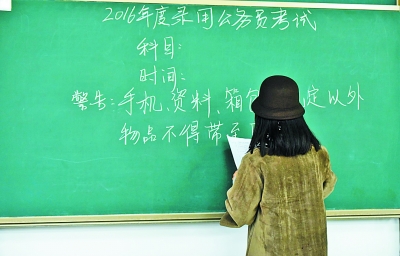 2016年度录用公务员考试
科目:
时间:
警告:手机、资料、箱包 定以外
物品不得带至